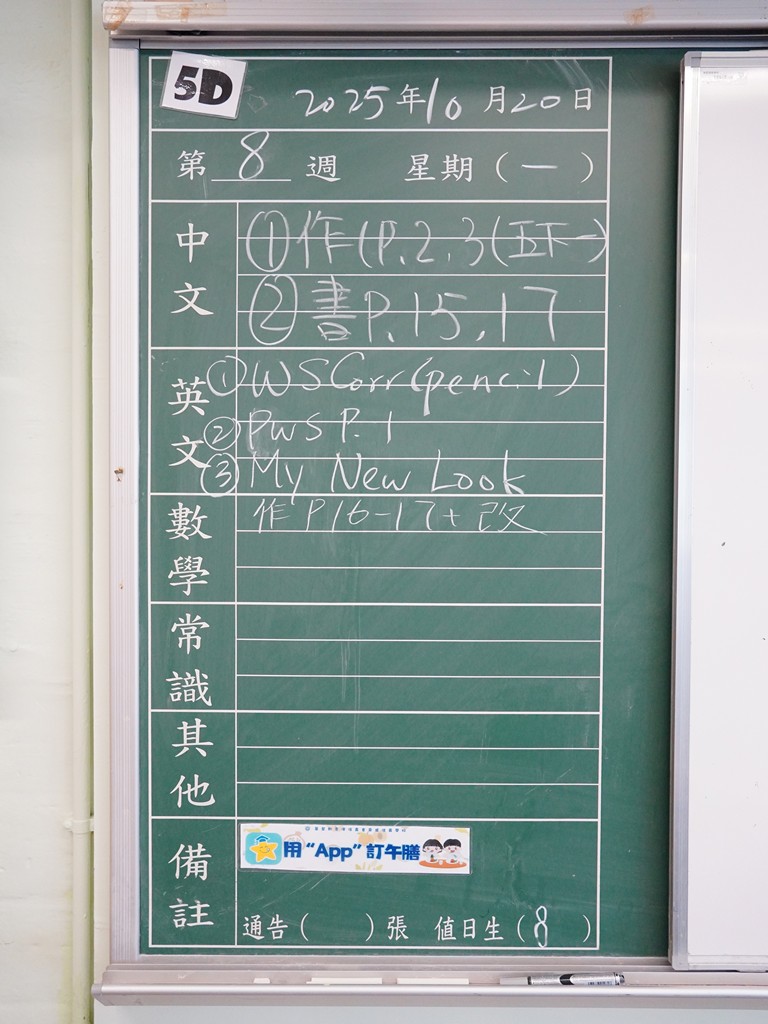 5D
2025年10月20日
第8週 星期(一)
中文
①作(P.2.3(五下一)
②書P.15,17
英文
①WS Corr(pencil)
②PWS P.1
③My New Look
數學
作P16-17+改
常識
其他
備註
用“App”訂午膳
通告( )張 值日生(8 )